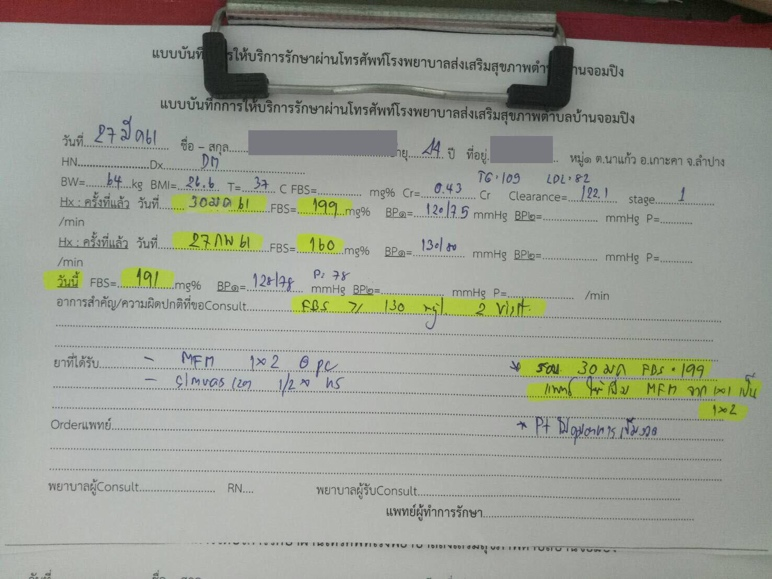 แบบบันทึการให้บริการรักษาผ่านโทรศัพท์โรงพยาบาลส่งเสริมสุขภาพตำบลบ้านจอมปิง
แบบบันทึกการให้บริการรักษาผ่านโทรศัพท์โรงพยาบาลส่งเสริมสุขภาพตำบลบ้านจอมปิง
วันที่ 27 มีค 61 ชื่อ - สกุล อายุ 44 ปี ที่อยู่ หมู่๑ ต.นาแก้ว อ.เกาะคา จ.ลำปาง
HN Dx DM TG = 109 LDL = 82
BW= 64 kg BMI= 26.6 T= 37 C FBS= mg% Cr= 0.43 Cr Clearance= 122.1 stage 1
Hx : ครั้งที่แล้ว วันที่ 30 มค 61 FBS= 199 mg% BP๑= 120/75 mmHg BP๒= mmHg P=
/min
Hx : ครั้งที่แล้ว วันที่ 27 กพ 61 FBS= 160 mg% BP๑= 130/80 mmHg BP๒= mmHg P=
/min
วันนี้ FBS= 191 mg% BP๑= 128/78 P: 78 mmHg BP๒= mmHg P= /min
อาการสำคัญ/ความผิดปกติที่ขอConsult FBS > 130 mg/. 2 visit
ยาที่ได้รับ - MFM 1x2 pc * 30 มค FBS = 199
- 1/2 x hs แพทย์ ให้เพิ่ม MFM จาก 1x1 เป็น
1x2
Orderแพทย์ * Pt ไม่คุมอาหาร
พยาบาลผู้Consult RN.... พยาบาลผู้รับConsult
แพทย์ผู้ทำการรักษา